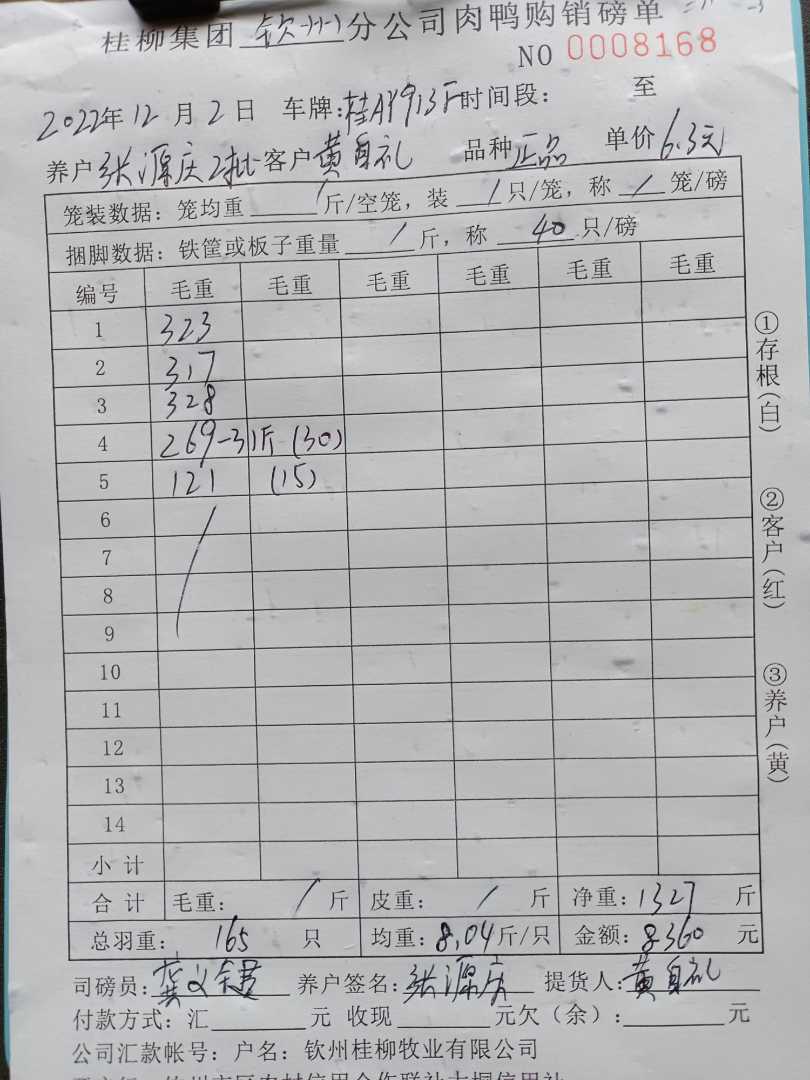 桂柳集团 钦州 分公司肉鸭购销磅单
NO 0008168
2022年12月2日 车牌: 时间段: 至
养户 张源庆2批 客户 黄自礼 品种 正品 单价 6.3元
笼装数据: 笼均重 / 斤/空笼, 装 / 只/笼, 称 / 笼/磅
捆脚数据: 铁筐或板子重量 / 斤, 称 40 只/磅
编号 毛重 毛重 毛重 毛重 毛重 毛重
1 323
2 317
3 328
4 269-31斤 (30)
5 121 (15)
6
7
8
9
10
11
12
13
14
小计
合计 毛重: / 斤 皮重: / 斤 净重: 1327 斤
总羽重: 165 只 均重: 8.04 斤/只 金额: 8360 元
司磅员: 养户签名: 张源庆 提货人: 黄自礼
付款方式: 汇 元 收现 元欠(余): 元
公司汇款帐号: 户名: 钦州桂柳牧业有限公司
①存根(白)
②客户(红)
③养户(黄)